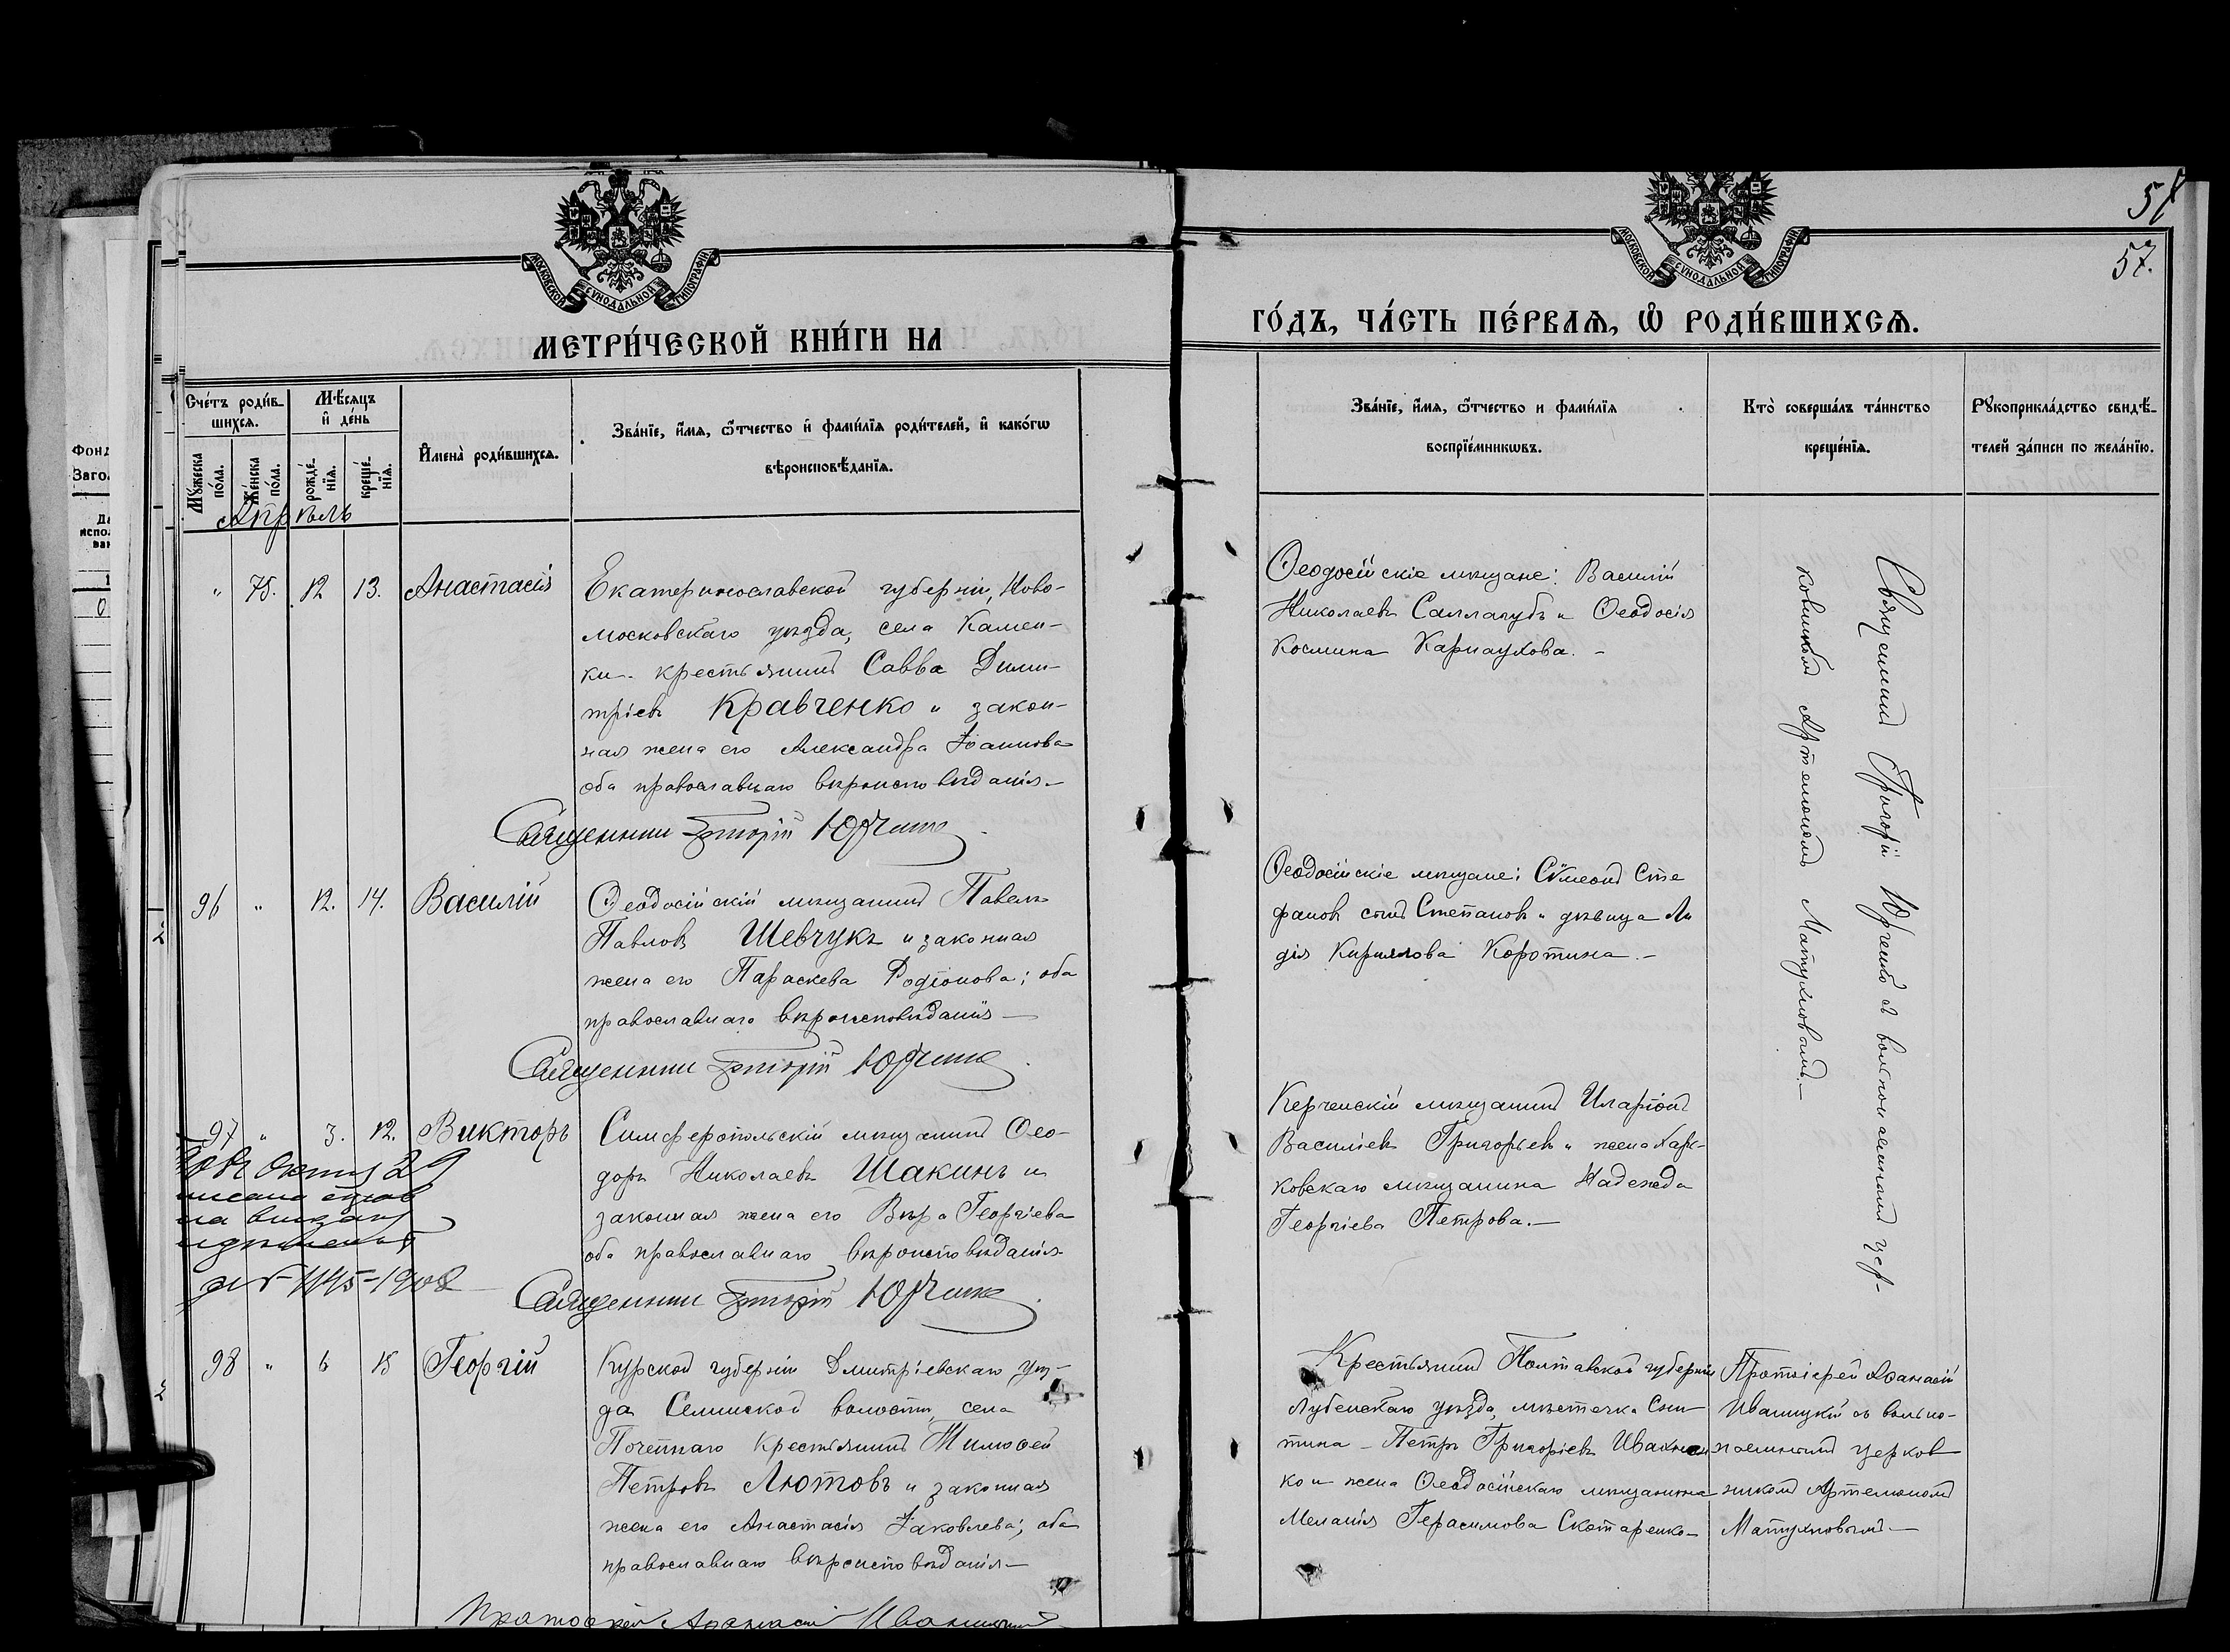 57
57.
МОСКОВСКОЙ СѴНОДАЛЬНОЙ ТИПОГРАФІИ
МЕТРИ́ЧЕСКОЙ КНИ́ГИ НА
Сче́тъ роди́в-
шихсѧ.
Мѣ́сѧцъ
и҆ де́нь
Мꙋ́жеска
по́ла.
Же́нска
по́ла.
рожде́-
нїѧ.
креще́-
нїѧ.
И҆мена̀ роди́вшихсѧ.
Зва́нїе, и҆́мѧ, ѻ҆́тчество и҆ фами́лїѧ роди́телей, и҆ како́гѡ
вѣроисповѣ́данїѧ.
Апрѣль
" 75. 12 13. Анастасія
Екатеринославской губерніи, Ново-
московскаго уѣзда, села Камен-
ки крестьянинъ Савва Дими-
тріевъ Кравченко и закон-
ная жена его Александра Іоаннова
оба православнаго вѣроисповѣданія.—
Священникъ Григорій Юрченко
96 " 12. 14. Василій
Ѳеодосійскій мѣщанинъ Павелъ
Павловъ Шевчукъ и законная
жена его Параскева Родіонова; оба
православнаго вѣроисповѣданія —
Священникъ Григорій Юрченко
97 " 3. 12. Викторъ
Симферопольскій мѣщанинъ Ѳео-
доръ Николаевъ Шакинъ и
законная жена его Вѣра Георгіева
оба православнаго вѣроисповѣданія
29
1908
Священникъ Григорій Юрченко
98 " 6 15 Георгій
Курской губерніи Дмитріевскаго уѣз-
да Селинской волости, села
крестьянинъ Тимоѳей
Петровъ Лютовъ и законная
жена его Анастасія Іаковлева; оба
православнаго вѣроисповѣданія —
Протоіерей Аѳанасій Иваницкій
МОСКОВСКОЙ СѴНОДАЛЬНОЙ ТИПОГРАФІИ
ГО́ДЪ, ЧА́СТЬ ПЕ́РВАѦ, Ѡ҆ РОДИ́ВШИХСѦ.
Зва́нїе, и҆́мѧ, ѻ҆́тчество и фами́лїѧ
воспрїе́мникѡвъ.
Кто̀ соверша́лъ та́инство
креще́нїѧ.
Рꙋкоприкла́дство свидѣ́-
телей за́писи по жела́нїю.
Ѳеодосійскіе мѣщане: Василій
Николаевъ Саллагубъ и Ѳеодосія
Космина Карнаухова. —
Ѳеодосійскіе мѣщане: Сѵмеонъ Сте
фановъ сынъ Степановъ и дѣвица Ли
дія Кириллова Коротина. —
Керченскій мѣщанинъ Иларіонъ
Василіевъ Григорьевъ и жена Харь-
ковскаго мѣщанина Надежда
Георгіева Петрова. —
Крестьянинъ Полтавской губерніи
Лубенскаго уѣзда, мѣстечка Сни-
тина — Петръ Григоріевъ Ивахнен
ко и жена Ѳеодосійскаго мѣщанина
Меланія Герасимова Скотаренко —
Священникъ Григорій Юрченко съ вольнонаемнымъ цер-
ковникомъ Артемономъ Матухновымъ. —
Протоіерей Аѳанасій
Иваницкій съ вольно-
наемнымъ церков
никомъ Артемономъ
Матухновымъ —